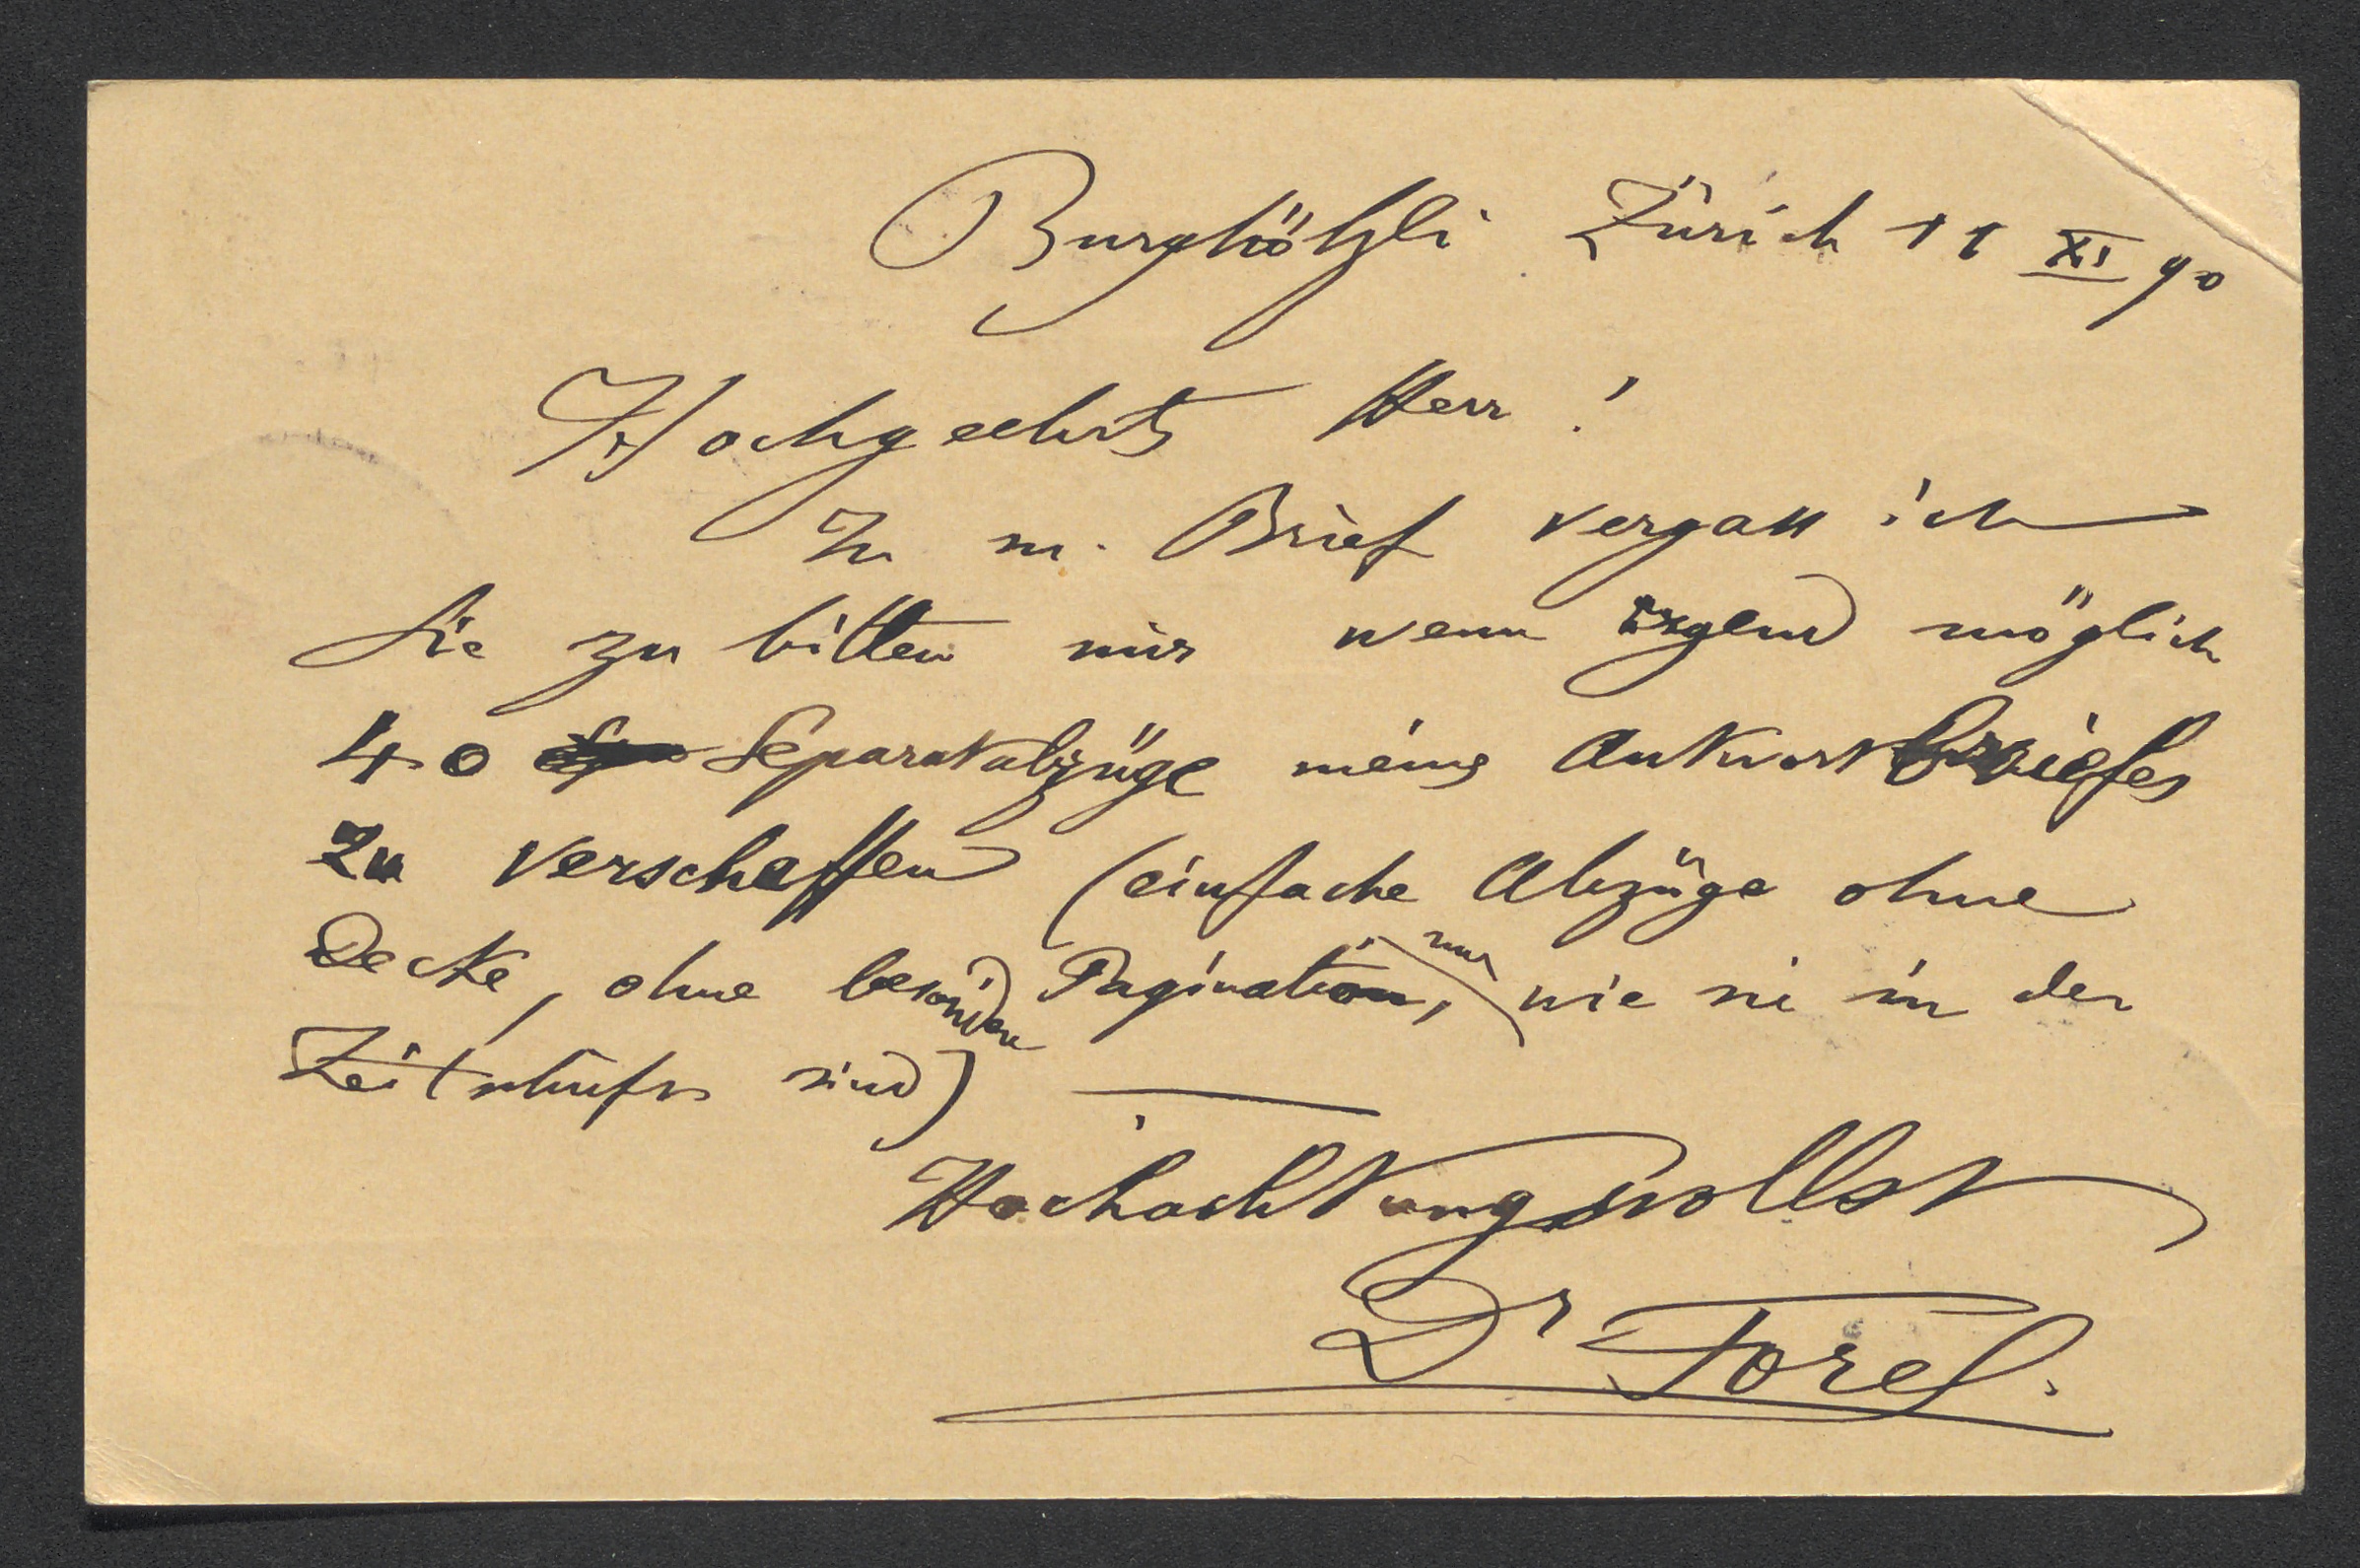 Burghölzli Zürich 11 XI 90
Hochgeehrter Herr!
In m. Brief vergass ich
Sie zu bitten mir wenn irgend möglich
40 Separatabzüge meines Antwortbriefes
zu verschaffen (einfache Abzüge ohne
Decke, ohne besondere Pagination, nur wie sie in der
Zeitschrift sind) —
Hochachtungsvollst
Dr Forel.